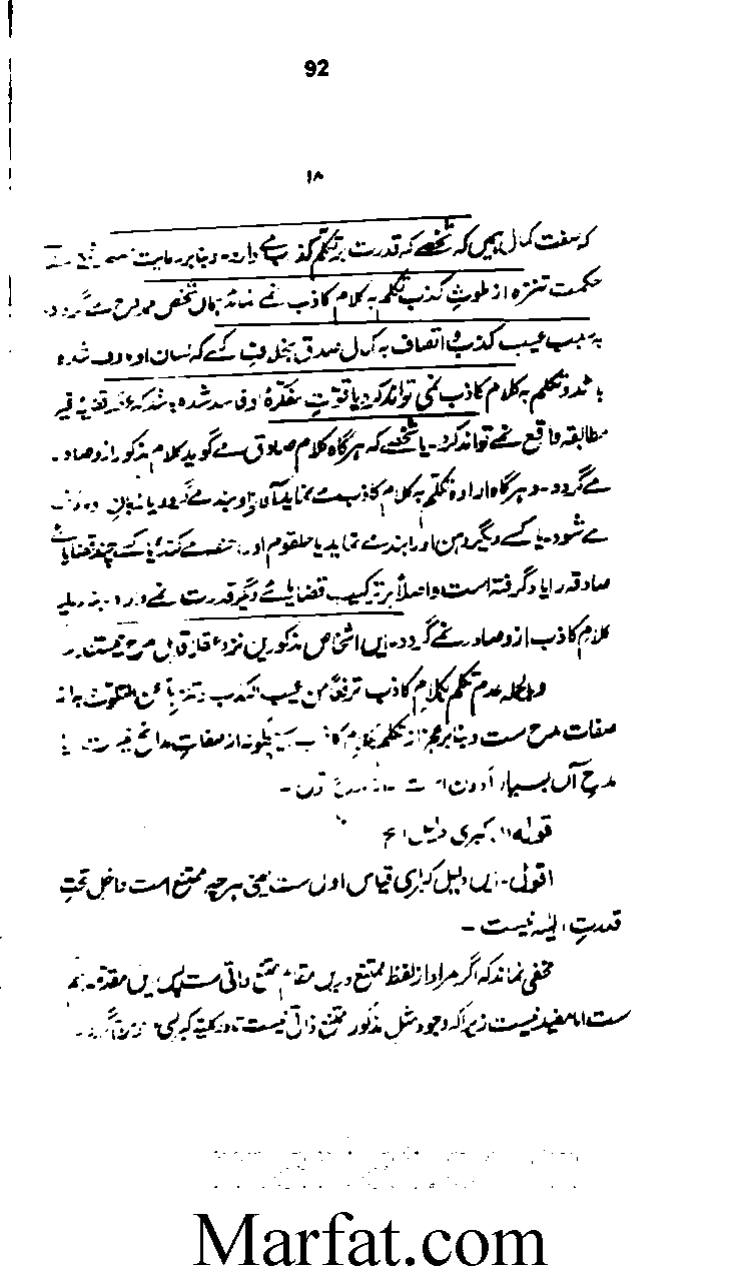 92
۱۸
که صفت کمال همیں که شخصے که قدرت بر تکلم کذب مے دارد - و بنا بر رعایت
حکمت تنزه از لوث کذب تکلم به کلام کاذب نمے نماید ہماں شخص ممدوح مے گردد
به سبب عیب کذب و اتصاف به کمال صدق بخلاف کسے که لسان او ماؤف شده
باشد و تکلم به کلام کاذب نمی تواند کرد یا قوت مفکرهٔ او فاسد شده باشد که عقد قضیه غیر
مطابقه واقع نمے تواند کرد - یا شخصے که ہر گاه کلام صادق مے گوید کلام مذکور ازو صادر
مے گردد - و ہر گاه اراده تکلم به کلام کاذب مے نماید آواز او بند مے گردد یا زبان
مے شود یا کسے دیگر دہن او را بند مے نماید یا حلقوم او را مے کند یا کسے چند قضایائے
صادقه را یاد گرفته است و اصلاً بر ترکیب قضایائے دیگر قدرت نمے دارد
کلام کاذب ازو صادر نمے گردد - ایں اشخاص مذکورین نزد عقلا قابل مدح نیستند
و بالجمله عدم تکلم بکلام کاذب ترفعاً عن عیب الکذب و تنزهاً عن التلوث به از
صفات مدح ست و بنا بر عجز از تکلم بکلام کاذب ہیچ گونه از صفات مدائح نیست یا
مدح آں بسیار ادون است از مدح
قوله کبری دلیل
اقول - ایں دلیل کبرائے قیاس اول ست یعنی ہرچه ممتنع است داخل تحت
قدرت الہیه نیست -
مخفی نماند که اگر مراد از لفظ ممتنع دریں مقام ممتنع ذاتی ست پس ایں مقدمه
ست اما مفید نیست زیرا که وجود مثل مذکور ممتنع ذاتی نیست
Marfat.com